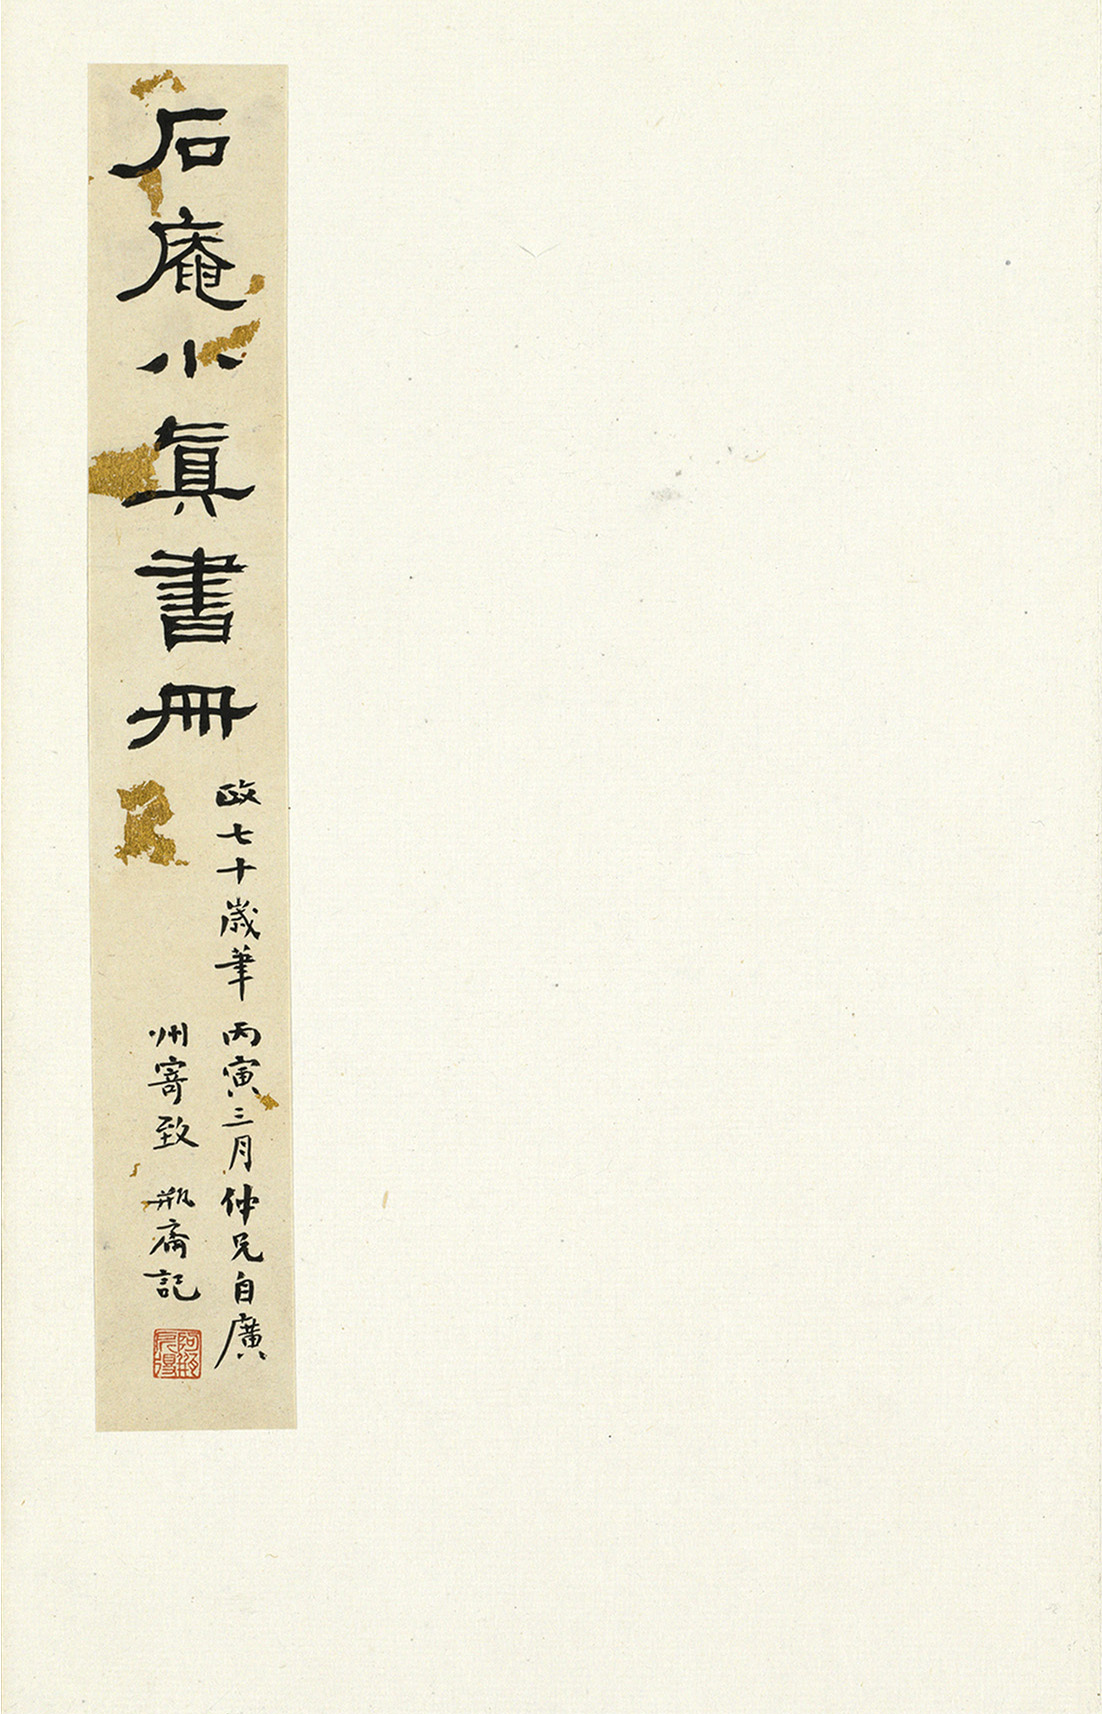 石庵小真書冊
政七十歲筆 丙寅三月仲兄自廣
州寄致 瓶齋記